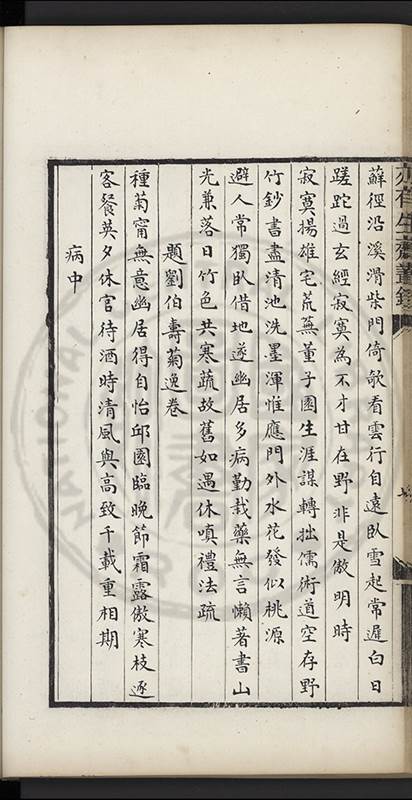 蘚徑沿溪滑柴門倚欹看雲行自遠臥雪起常遲白日
蹉跎過玄經寂寞為不才甘在野非是傲明時
寂寞揚雄宅荒蕪董子園生涯謀轉拙儒術道空存野
竹鈔書盡清池洗墨渾惟應門外水花發似桃源
避人常獨臥借地遂幽居多病勤栽藥無言懶著書山
光兼落日竹色共寒蔬故舊如遇休嗔禮法疏
題劉伯壽菊逸卷
種菊甯無意幽居得自怡邱園臨晚節霜露傲寒枝逐
客餐英夕休官待酒時清風與高致千載重相期
病中